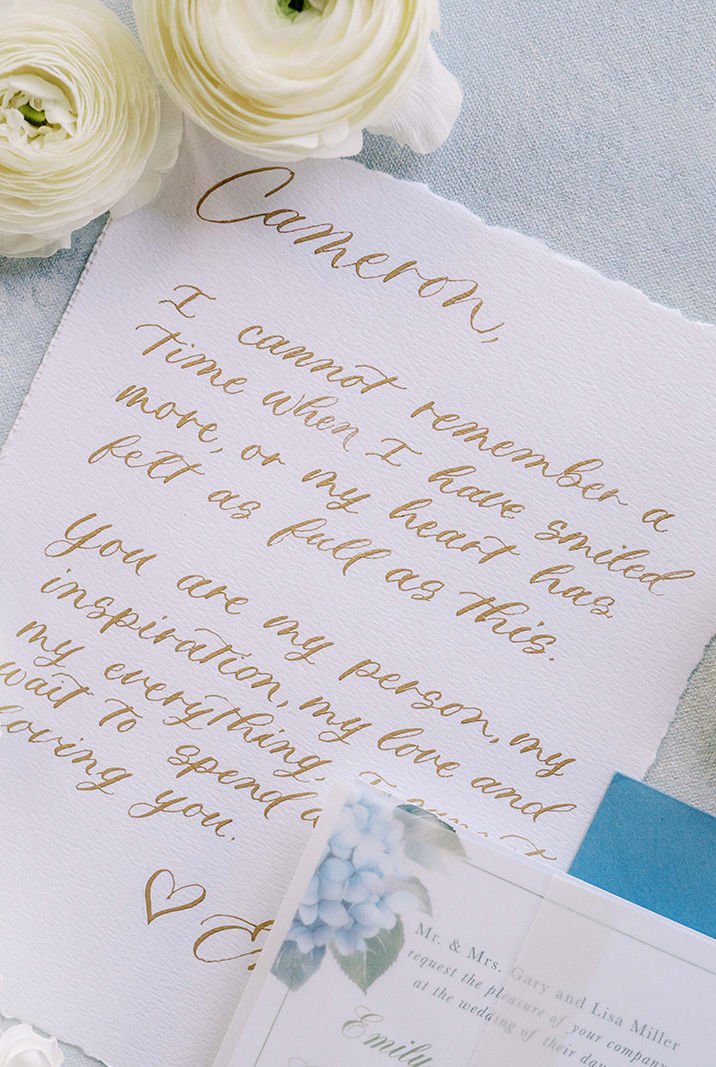 Cameron,
I cannot remember a
time when I have smiled
more, or my heart has
felt as full as this.
You are my person, my
inspiration, my love and
my everything. I cannot
wait to spend
loving you.
Mr. & Mrs. Gary and Lisa Miller
request the pleasure of your company
at the wedding of their
Emily